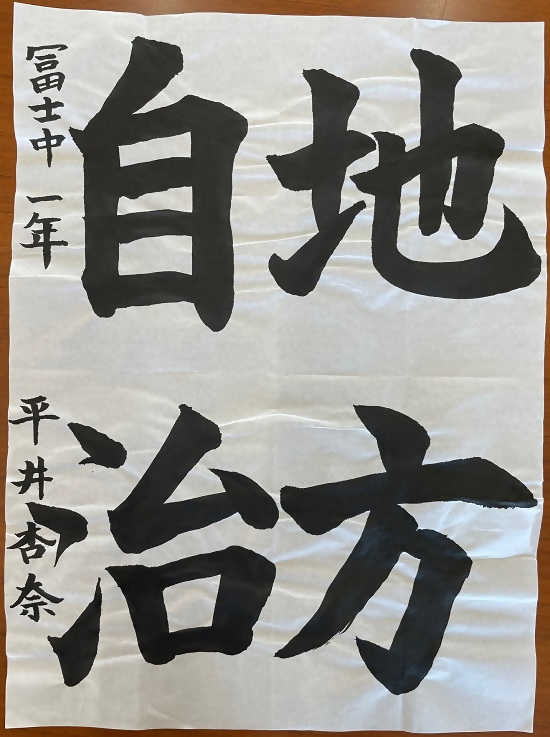 地方
自治
冨士中 一年 平井杏奈